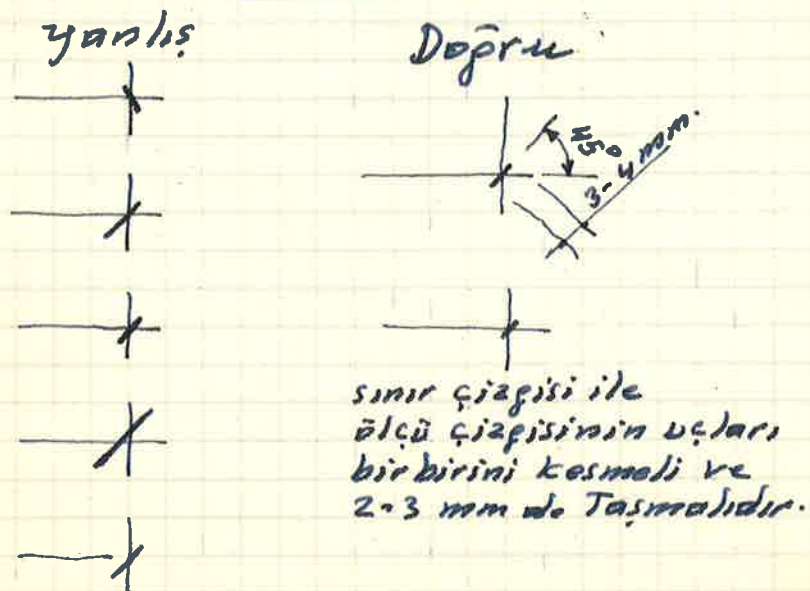 yanlış
Doğru
45°
3-4 mm.
sınır çizgisi ile
ölçü çizgisinin uçları
birbirini kesmeli ve
2-3 mm de Taşmalıdır.